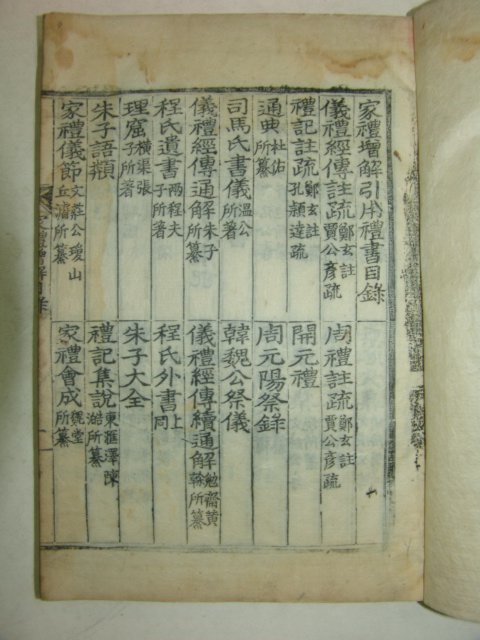 家禮增解引用禮書目錄
儀禮經傳註疏 鄭玄註 賈公彦疏
周禮註疏 鄭玄註 賈公彦疏
禮記註疏 鄭玄註 孔穎達疏
開元禮
通典 杜佑所纂
周元陽祭錄
司馬氏書儀 溫公所著
韓魏公祭儀
儀禮經傳通解 朱子所纂
儀禮經傳續通解 勉齋黃榦所纂
程氏遺書 兩程夫子所著
程氏外書 上同
理窟 橫渠張子所著
朱子大全
朱子語類
禮記集說 東滙澤陳澔所纂
家禮儀節 文莊公瓊山丘濬所纂
家禮會成 魏堂所纂